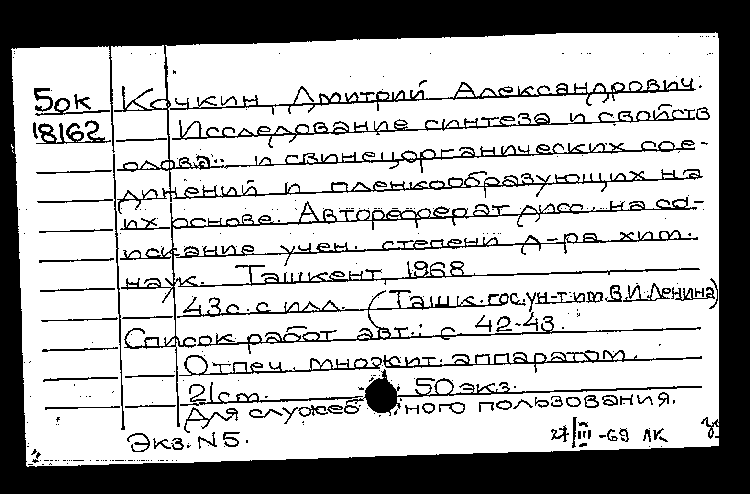 5ок Кочкин, Дмитрий Александрович.
18162 Исследование синтеза и свойств
олово- и свинецорганических сое-
динений и пленкообразующих на
их основе. Автореферат дисс. на со-
искание учен. степени д-ра хим.
наук. Ташкент, 1968
43с. с илл. (Ташк.гос.ун-т.им.В.И.Ленина)
Список работ авт.: с 42-43.
Отпеч. множит. аппаратом.
21cm. 50экз.
Для служебного пользования.
Экз. N5. 27/III-69 ЛК